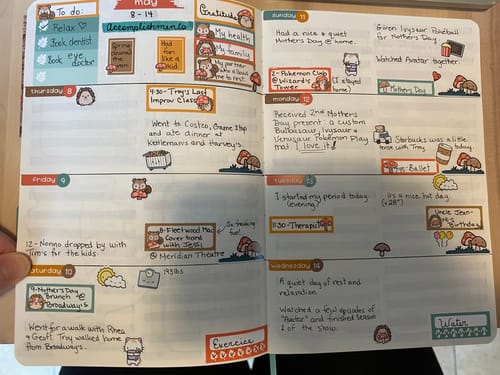 may
8-14
To do:
Relax ♡
Book dentist
Book eye
doctor
Accomplishments
Had
fun
like a
kid
Gratitude
My health
My family
My partner
who allows
me to rest
thursday 8
4:30-Troy's Last
Improv Class
Went to Costco, Game Stop
and ate dinner at
Kettlemans and Harvey's
friday 9
12- Nonno dropped by with
Tim's for the kids.
8-Fleetwood Mac
Cover Band
with Jessi
@ Meridian Theatre
So freaking
fun!
saturday 10
9-Mother's Day
Brunch @
Broadways
193lbs
Went for a walk with Rhea
& Geoff. Troy walked home
from Broadways.
Exercise
sunday 11
Had a nice & quiet
Mother's Day @ home.
Given Ivysaur Pokéball
for Mother's Day.
Watched Avatar together.
2-Pokemon Club
@ Wizard's
Tower
I stayed
home
Mother's Day
monday 12
Received 2nd Mother's
Day present: a custom
Bulbasaur, Ivysaur &
Venusaur Pokémon Play
mat. I love it!
Starbucks was a little
tense with Troy today.
Ballet
tuesday 13
I started my period today
(evening?)
It's a nice hot day.
(+28°)
11:30-Therapist
Uncle Jean-
M
Birthday
wednesday 14
A quiet day of rest and
relaxation.
Watched a few episodes of
"Avatar" and finished Season
1 of the show.
Water